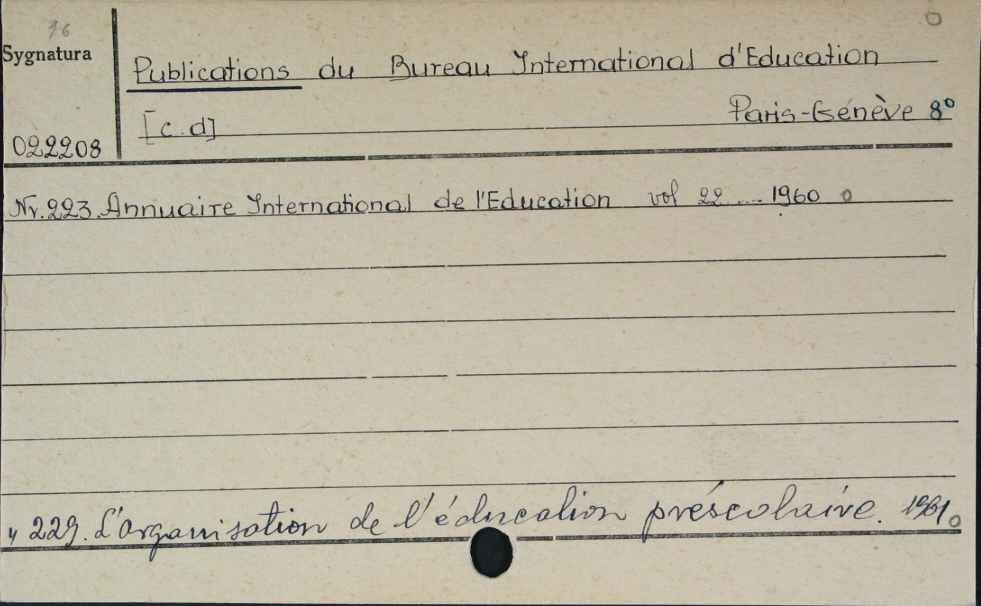 76
Sygnatura
Publications du Bureau International d'Education
[c.d]
Paris-Genève 8°
022208
Nr. 223. Annuaire International de l'Education vol 22 ... 1960 o
" 229. L'organisation de l'éducation préscolaire. 1961 o